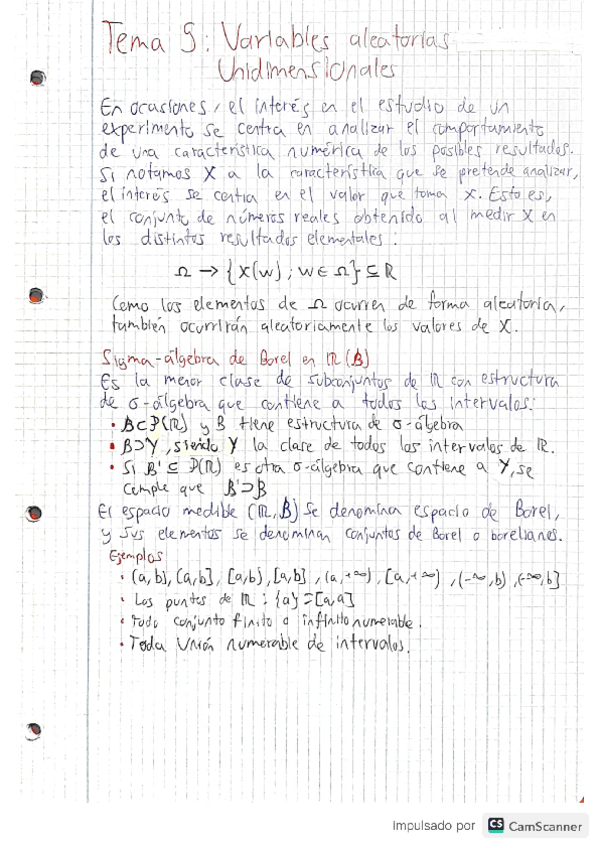 Tema 5: Variables aleatorias
Unidimensionales
En ocasiones, el interés en el estudio de un
experimento se centra en analizar el comportamiento
de una característica numérica de los posibles resultados.
Si notamos X a la característica que se pretende analizar,
el interés se centra en el valor que toma X. Esto es,
el conjunto de números reales obtenido al medir X en
los distintos resultados elementales:
Ω → {X(w); w ∈ Ω} ⊆ ℝ
Como los elementos de Ω ocurren de forma aleatoria,
también ocurrirán aleatoriamente los valores de X.
Sigma-álgebra de Borel en ℝ (B)
Es la menor clase de subconjuntos de ℝ con estructura
de σ-álgebra que contiene a todos los intervalos:
• B⊂P(ℝ) y B tiene estructura de σ-álgebra
• B⊃Y, siendo Y la clase de todos los intervalos de ℝ.
• Si B' ⊆ P(ℝ) es otra σ-álgebra que contiene a Y, se
cumple que B'⊃B
El espacio medible (ℝ, B) se denomina espacio de Borel,
y sus elementos se denominan conjuntos de Borel o borelianos.
Ejemplos
• (a,b), (a,b], [a,b), [a,b], (a,+∞), [a,+∞), (-∞,b), (-∞,b]
• Los puntos de ℝ: {a}=[a,a]
• Todo conjunto finito o infinito numerable.
• Toda unión numerable de intervalos.
Impulsado por CS CamScanner